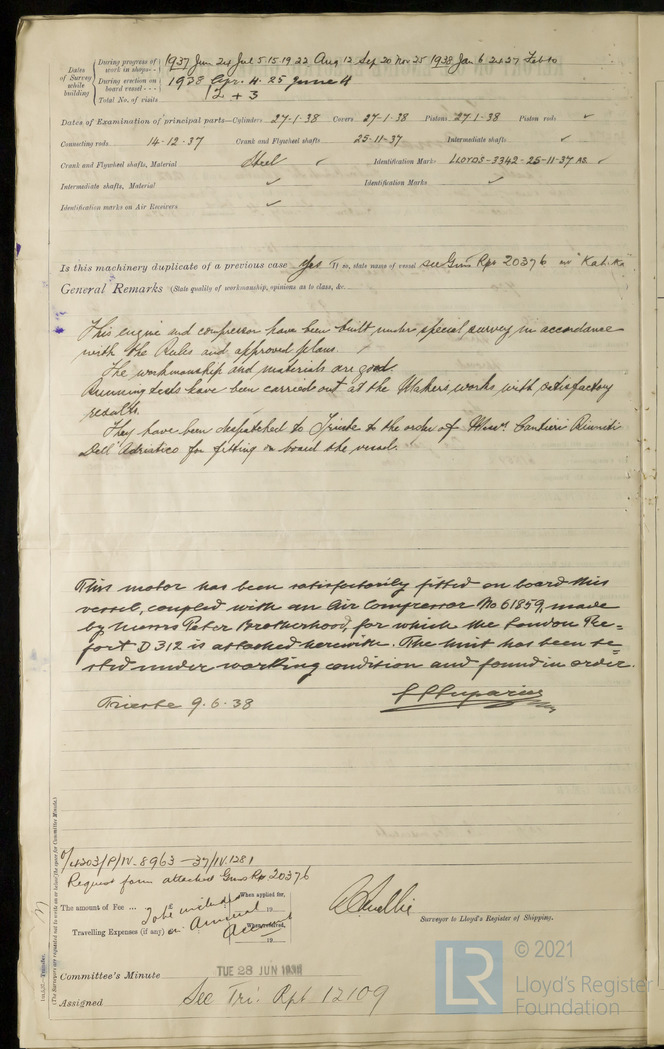 Dates of Survey while building
During progress of work in shops - - 1937 Jun 24 Jul 5 15 19 22 Aug 12 Sep 20 Nov 25 1938 Jan 6 24 27 Feb 10
During erection on board vessel - - - 1938 Apr. 4. 25 June 4
Total No. of visits 12 + 3
Dates of Examination of principal parts—Cylinders 27-1-38 Covers 27-1-38 Pistons 27-1-38 Piston rods ✓
Connecting rods 14-12-37 Crank and Flywheel shafts 25-11-37 Intermediate shafts ✓
Crank and Flywheel shafts, Material Steel ✓ Identification Marks LLOYDS-3342-25-11-37 AS. ✓
Intermediate shafts, Material ✓ Identification Marks ✓
Identification marks on Air Receivers ✓
Is this machinery duplicate of a previous case Yes If so, state name of vessel see Gms Rpt 20376 "Kaluka"
General Remarks (State quality of workmanship, opinions as to class, &c.
This engine and compressor have been built under special survey in accordance
with the Rules and approved plans.
The workmanship and materials are good.
Running tests have been carried out at the Makers works with satisfactory
results.
They have been despatched to Trieste to the order of Messrs Cantieri Riuniti
Dell' Adriatico for fitting on board the vessel.
This motor has been satisfactorily fitted on board this
vessel, coupled with an Air Compressor No 61859, made
by Messrs Peter Brotherhood, for which the London Re=
port D 312 is attached herewith. The unit has been te=
sted under working condition and found in order.
Trieste 9.6.38
Request form attached Gms Rpt 20376
The amount of Fee ... To be included
When applied for, 19
Travelling Expenses (if any) on Annual Account
When received, 19
Surveyor to Lloyd's Register of Shipping.
Committee's Minute TUE 28 JUN 1938
Assigned See Tri. Rpt 12109
(The Surveyors are requested not to write on or below the space for Committee Minute.)
© 2021
LR Lloyd's Register
Foundation